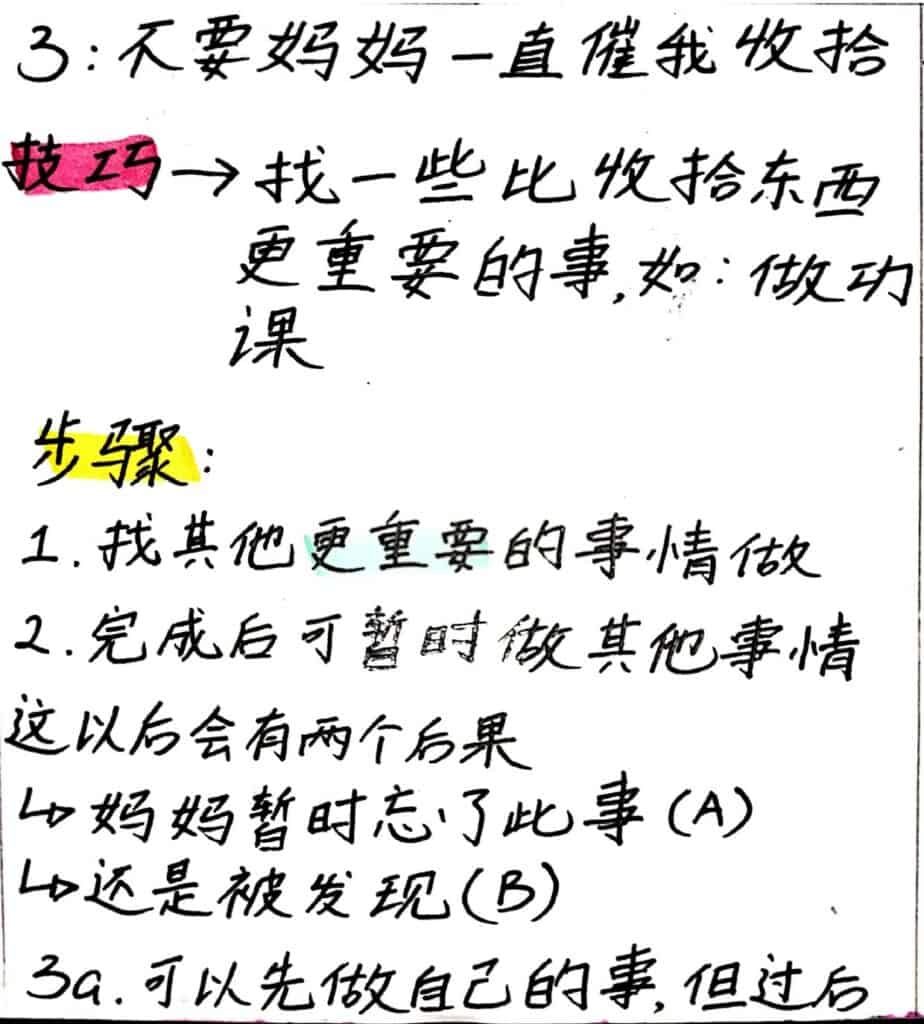 3:不要妈妈一直催我收拾
技巧→找一些比收拾东西
更重要的事,如:做功
课
步骤:
1.找其他更重要的事情做
2.完成后可暂时做其他事情
这以后会有两个后果
↳妈妈暂时忘了此事(A)
↳还是被发现(B)
3a.可以先做自己的事,但过后